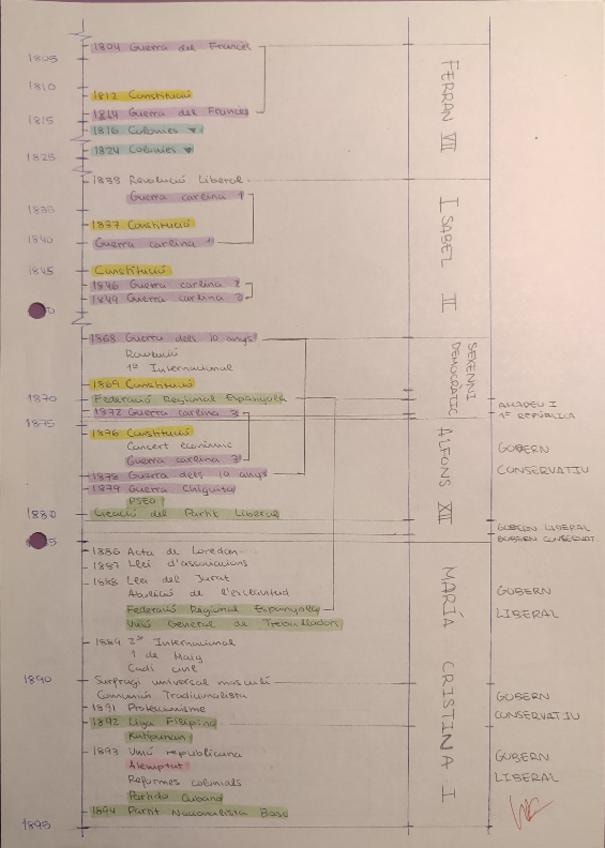 1804 Guerra del Francès
1805
1810
1812 Constitució
1814 Guerra del Francès
1815
1816 Colonies
1824 Colonies
1825
FERRAN VII
1833 Revolució Liberal
Guerra carlina 1
1835
1837 Constitució
1840
Guerra carlina 1
1845
Constitució
1846 Guerra carlina 2
1849 Guerra carlina 2
ISABEL II
1868 Guerra dels 10 anys
Revolució
1ª Internacional
1869 Constitució
1870
Federació Regional Espanyola
1872 Guerra carlina 3
SEXENNI
DEMOCRÀTIC
AMADEU I
1ª REPÚBLICA
1875
1876 Constitució
Concert econòmic
Guerra carlina 3
1878 Guerra dels 10 anys
1879 Guerra Chiquita
PSEO
1880
Creació del Partit Liberal
ALFONS XII
GOBERN
CONSERVATIU
GOBERN LIBERAL
GOBERN CONSERVAT.
1886 Acta de Loredan
1887 Llei d'associacions
1888 Llei del Jurat
Abolició de l'esclavitud
Federació Regional Espanyola
Unió General de Treballadors
1889 2ª Internacional
1 de Maig
Codi civil
GOBERN
LIBERAL
MARÍA CRISTINA I
1890
Surfragi universal masculí
Comunió Tradicionalista
1891 Proteccionisme
1892 Liga Filipina
Katipunan
GOBERN
CONSERVATIU
1893 Unió republicana
Atemptat
Reformes colonials
Partido Cubano
1894 Partit Nacionalista Basc
1895
GOBERN
LIBERAL